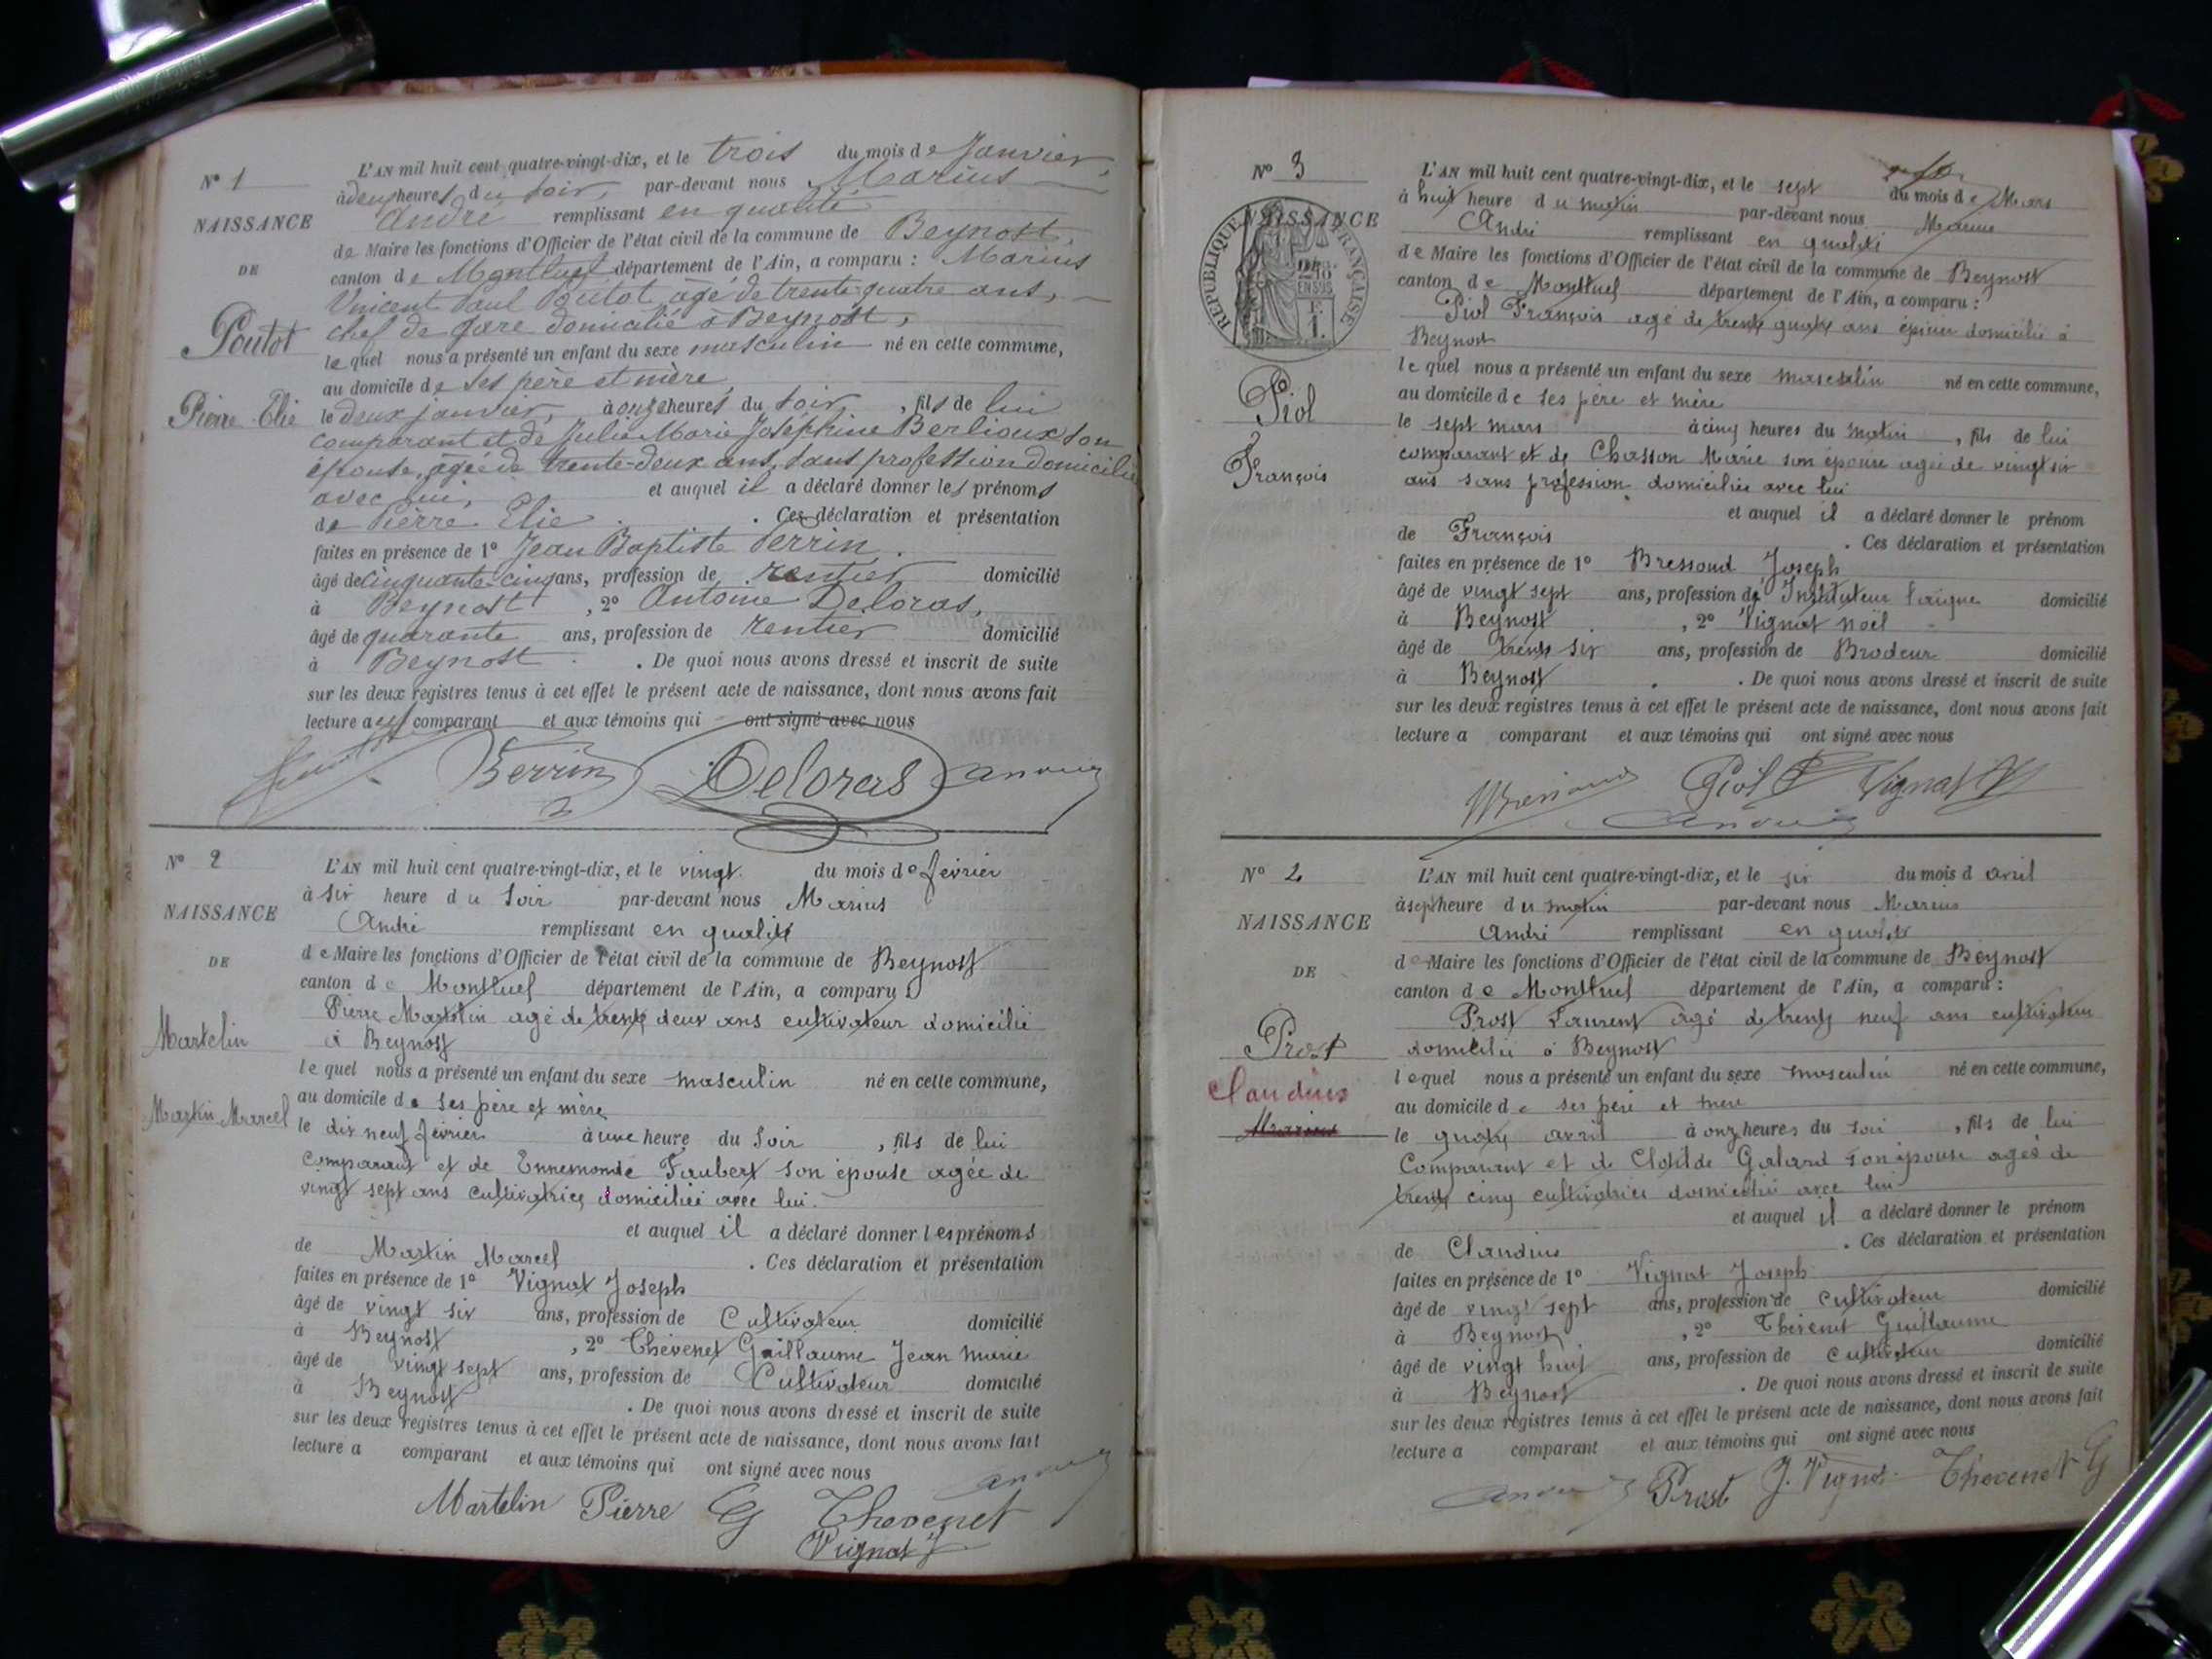 N° 1
NAISSANCE
DE
Poutot
Pierre Elie
L'AN mil huit cent quatre-vingt-dix, et le trois du mois de Janvier,
à deux heures du soir, par-devant nous Marius
André remplissant en qualité
de Maire les fonctions d'Officier de l'état civil de la commune de Beynost,
canton de Montluel département de l'Ain, a comparu : Marius
Vincent Paul Poutot, âgé de trente-quatre ans,
chef de gare domicilié à Beynost,
lequel nous a présenté un enfant du sexe masculin né en cette commune,
au domicile de ses père et mère,
le deux janvier, à onze heures du soir, fils de lui
comparant et de Julie Marie Joséphine Berlioux son
épouse, âgée de trente-deux ans, sans profession domiciliée
avec lui, et auquel il a déclaré donner les prénoms
de Pierre Elie . Ces déclaration et présentation
faites en présence de 1° Jean Baptiste Perrin.
âgé de cinquante-cinq ans, profession de rentier domicilié
à Beynost , 2° Antoine Deloras,
âgé de quarante ans, profession de rentier domicilié
à Beynost . De quoi nous avons dressé et inscrit de suite
sur les deux registres tenus à cet effet le présent acte de naissance, dont nous avons fait
lecture au comparant et aux témoins qui ont signé avec nous
Perrin Deloras
N° 2
NAISSANCE
DE
Martelin
Martin Marcel
L'AN mil huit cent quatre-vingt-dix, et le vingt du mois de février
à six heure du soir par-devant nous Marius
André remplissant en qualité
de Maire les fonctions d'Officier de l'état civil de la commune de Beynost
canton de Montluel département de l'Ain, a comparu :
Pierre Martelin agé de trente deux ans cultivateur domicilié
à Beynost
lequel nous a présenté un enfant du sexe masculin né en cette commune,
au domicile de ses père et mère
le dix neuf février à une heure du soir , fils de lui
comparant et de Ennemonde Faubert son épouse agée de
vingt sept ans cultivatrice domiciliée avec lui.
et auquel il a déclaré donner les prénoms
de Martin Marcel . Ces déclaration et présentation
faites en présence de 1° Vignat Joseph
âgé de vingt six ans, profession de Cultivateur domicilié
à Beynost , 2° Thévenet Guillaume Jean Marie
âgé de vingt sept ans, profession de Cultivateur domicilié
à Beynost . De quoi nous avons dressé et inscrit de suite
sur les deux registres tenus à cet effet le présent acte de naissance, dont nous avons fait
lecture a comparant et aux témoins qui ont signé avec nous
Martelin Pierre G Thevenet
Vignat J
N° 3
NAISSANCE
RÉPUBLIQUE FRANÇAISE
2/10 EN SUS
F. 1.
Piol
François
L'AN mil huit cent quatre-vingt-dix, et le sept du mois de Mars
à huit heure du matin par-devant nous Marius
André remplissant en qualité
de Maire les fonctions d'Officier de l'état civil de la commune de Beynost
canton de Montluel département de l'Ain, a comparu :
Piol François agé de trente quatre ans épicier domicilié à
Beynost
lequel nous a présenté un enfant du sexe masculin né en cette commune,
au domicile de ses père et mère
le sept mars à cinq heures du matin , fils de lui
comparant et de Chasson Marie son épouse agée de vingt six
ans sans profession domiciliée avec lui
et auquel il a déclaré donner le prénom
de François . Ces déclaration et présentation
faites en présence de 1° Bressoud Joseph
âgé de vingt sept ans, profession de Instituteur laïque domicilié
à Beynost , 2° Vignat noël
âgé de trente six ans, profession de Brodeur domicilié
à Beynost . De quoi nous avons dressé et inscrit de suite
sur les deux registres tenus à cet effet le présent acte de naissance, dont nous avons fait
lecture a comparant et aux témoins qui ont signé avec nous
Piol Vignat
N° 4
NAISSANCE
DE
Prost
Claudius
Marius
L'AN mil huit cent quatre-vingt-dix, et le six du mois d avril
à sept heure du matin par-devant nous Marius
André remplissant en qualité
de Maire les fonctions d'Officier de l'état civil de la commune de Beynost
canton de Montluel département de l'Ain, a comparu :
Prost Laurent âgé de trente neuf ans cultivateur
domicilié à Beynost
lequel nous a présenté un enfant du sexe masculin né en cette commune,
au domicile de ses père et mère
le quatre avril à onze heures du soir , fils de lui
Comparant et de Clotilde Galard son épouse agée de
trente cinq cultivatrice domiciliée avec lui
et auquel il a déclaré donner le prénom
de Claudius . Ces déclaration et présentation
faites en présence de 1° Vignat Joseph
âgé de vingt sept ans, profession de Cultivateur domicilié
à Beynost , 2° Thévenet Guillaume
âgé de vingt huit ans, profession de Cultivateur domicilié
à Beynost . De quoi nous avons dressé et inscrit de suite
sur les deux registres tenus à cet effet le présent acte de naissance, dont nous avons fait
lecture a comparant et aux témoins qui ont signé avec nous
Prost J. Vignat Thevenet G